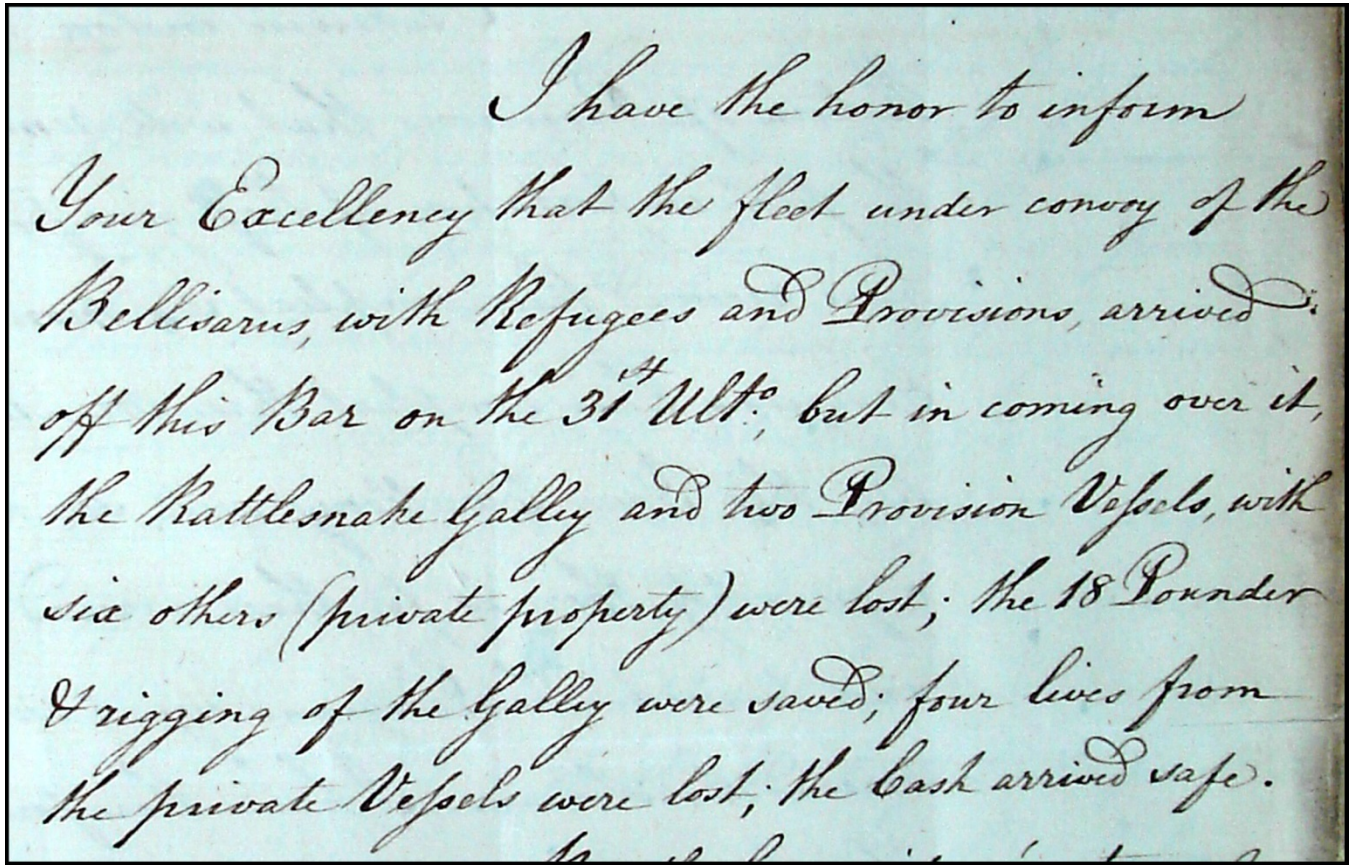 I have the honor to inform
Your Excellency that the fleet under convoy of the
Bellisarus, with Refugees and Provisions, arrived
off this Bar on the 31st Ulto., but in coming over it,
the Rattlesnake Galley and two Provision Vessels, with
six others (private property) were lost; the 18 Pounder
& rigging of the Galley were saved; four lives from
the private Vessels were lost; the Cash arrived safe.